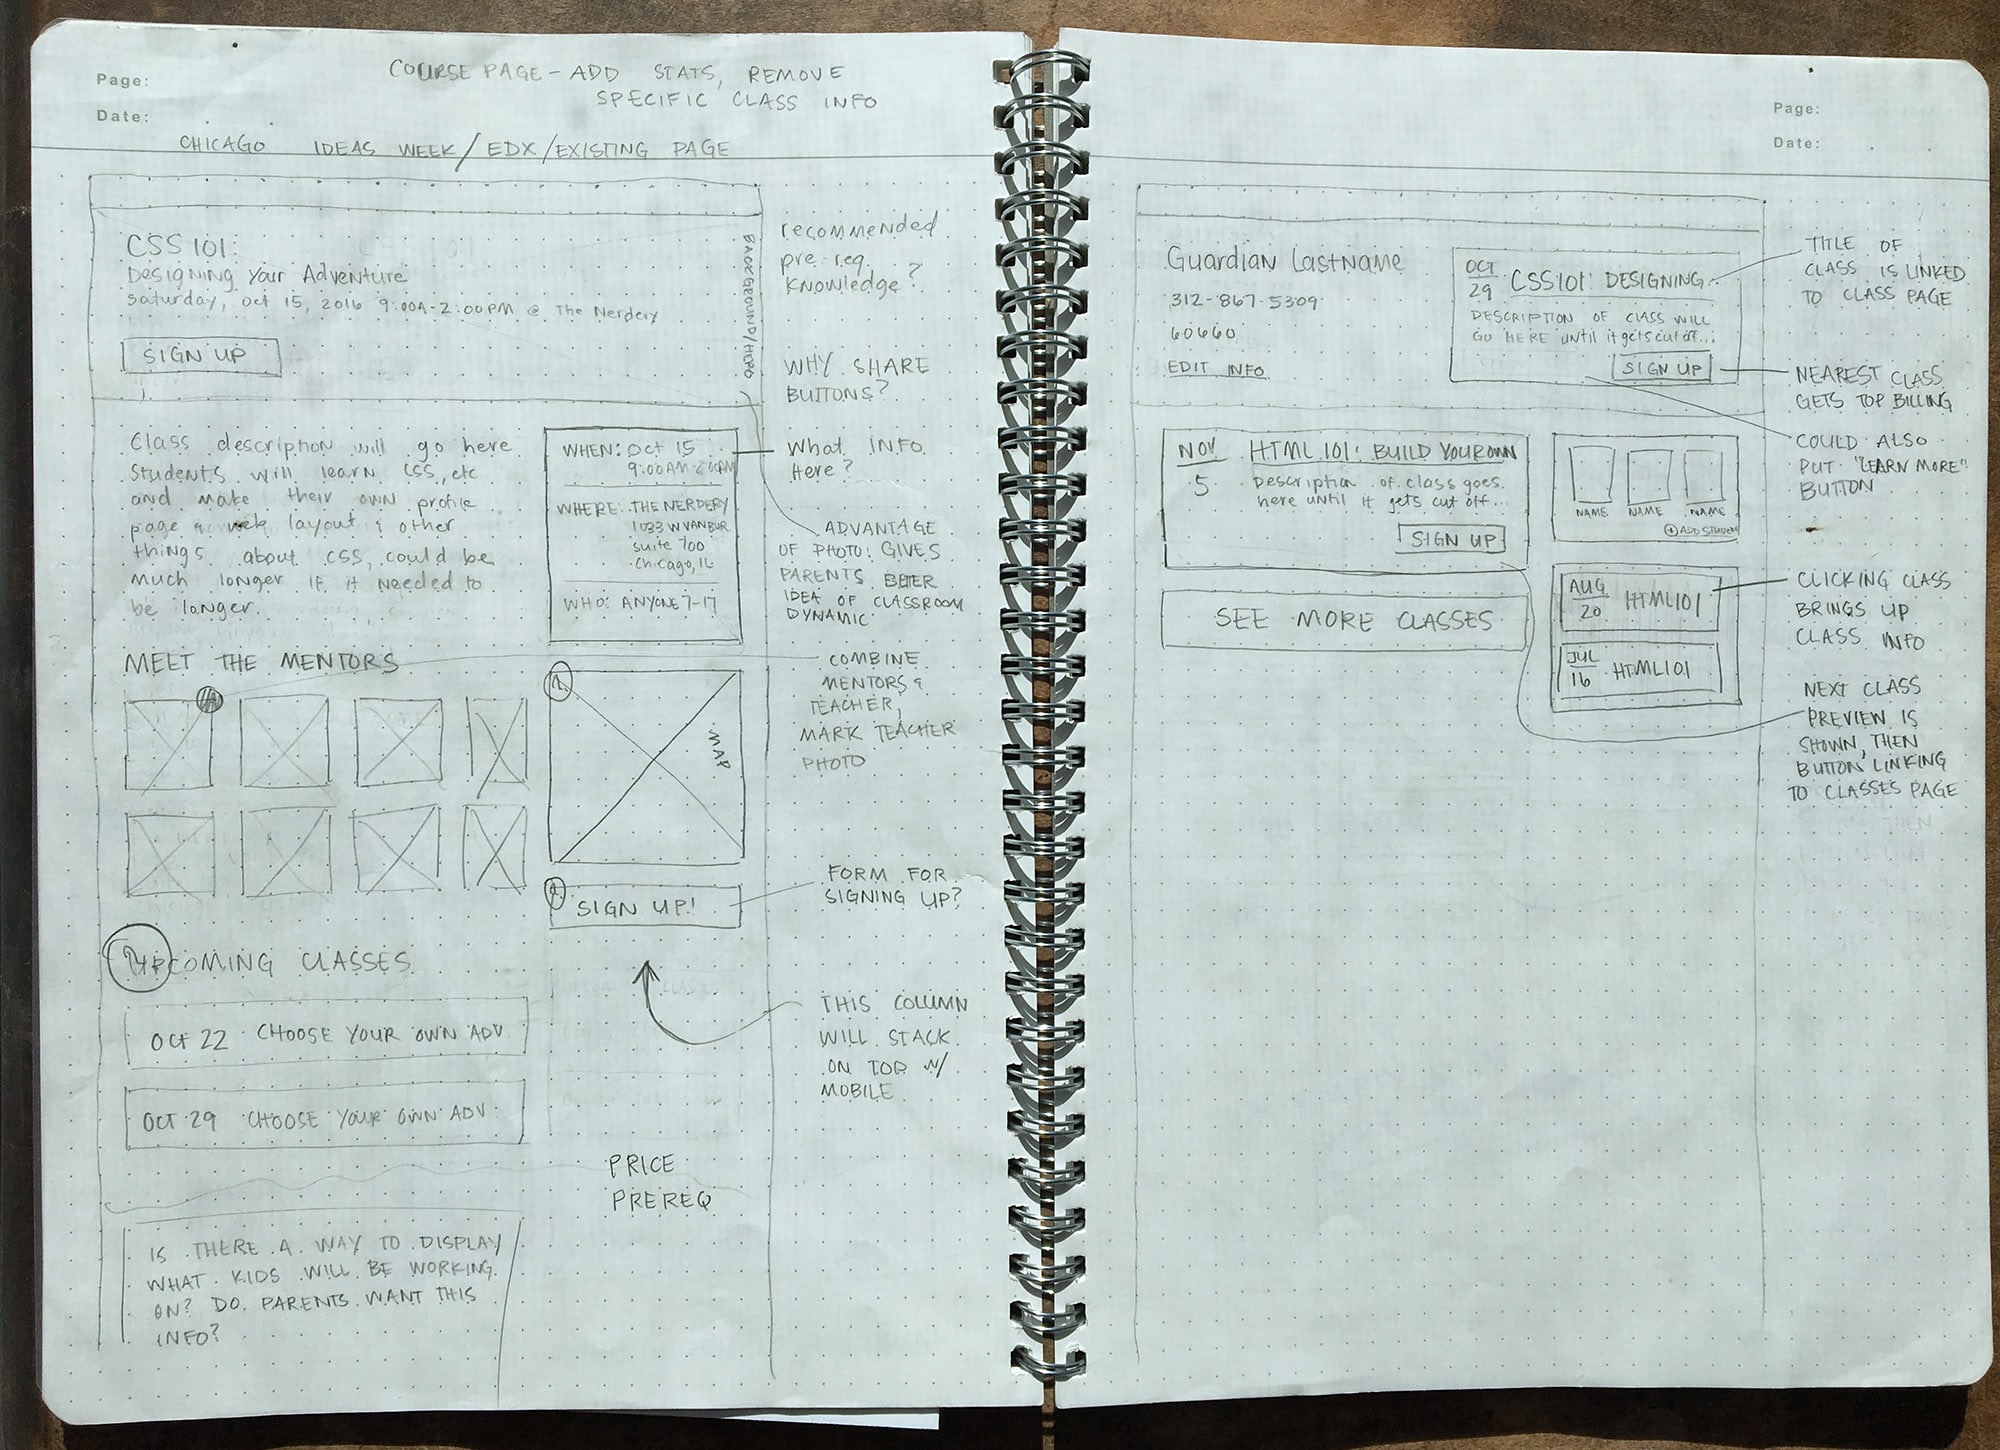 Page:
Date:
COURSE PAGE - ADD STATS, REMOVE
SPECIFIC CLASS INFO
CHICAGO IDEAS WEEK/EDX/EXISTING PAGE
CSS 101:
Designing Your Adventure
Saturday, Oct 15, 2016 9:00A-2:00PM @ The Nerdery
SIGN UP
BACKGROUND/HERO
recommended
pre-req.
knowledge?
WHY SHARE
BUTTONS?
What INFO
Here?
ADVANTAGE
OF PHOTO: GIVES
PARENTS BETTER
IDEA OF CLASSROOM
DYNAMIC
Class description will go here
Students will learn CSS, etc
and make their own profile
page & web layout & other
things about CSS, could be
much longer IF it needed to
be longer.
WHEN: Oct 15
9:00AM-2:00PM
WHERE: THE NERDERY
1033 W VAN BUR
Suite 700
Chicago, IL
WHO: ANYONE 7-17
MEET THE MENTORS
COMBINE
MENTORS &
TEACHER,
MARK TEACHER
PHOTO
MAP
SIGN UP!
FORM FOR
SIGNING UP?
UPCOMING CLASSES
OCT 22 CHOOSE YOUR OWN ADV
OCT 29 CHOOSE YOUR OWN ADV.
THIS COLUMN
WILL STACK
ON TOP W/
MOBILE
PRICE
PREREQ
IS THERE A WAY TO DISPLAY
WHAT KIDS WILL BE WORKING
ON? DO PARENTS WANT THIS
INFO?
Page:
Date:
Guardian Lastname
312-867-5309
60660
EDIT INFO
OCT
29
CSS101: DESIGNING
DESCRIPTION OF CLASS WILL
GO HERE until it gets cut off...
SIGN UP
TITLE OF
CLASS IS LINKED
TO CLASS PAGE
NEAREST CLASS
GETS TOP BILLING
COULD ALSO
PUT "LEARN MORE"
BUTTON
NOV
5
HTML 101: BUILD YOUR OWN
Description of class goes
here until it gets cut off...
SIGN UP
NAME NAME NAME
+ ADD STUDENT
SEE MORE CLASSES
AUG
20
HTML101
JUL
16
HTML101
CLICKING CLASS
BRINGS UP
CLASS INFO
NEXT CLASS
PREVIEW IS
SHOWN, THEN
BUTTON LINKING
TO CLASSES PAGE